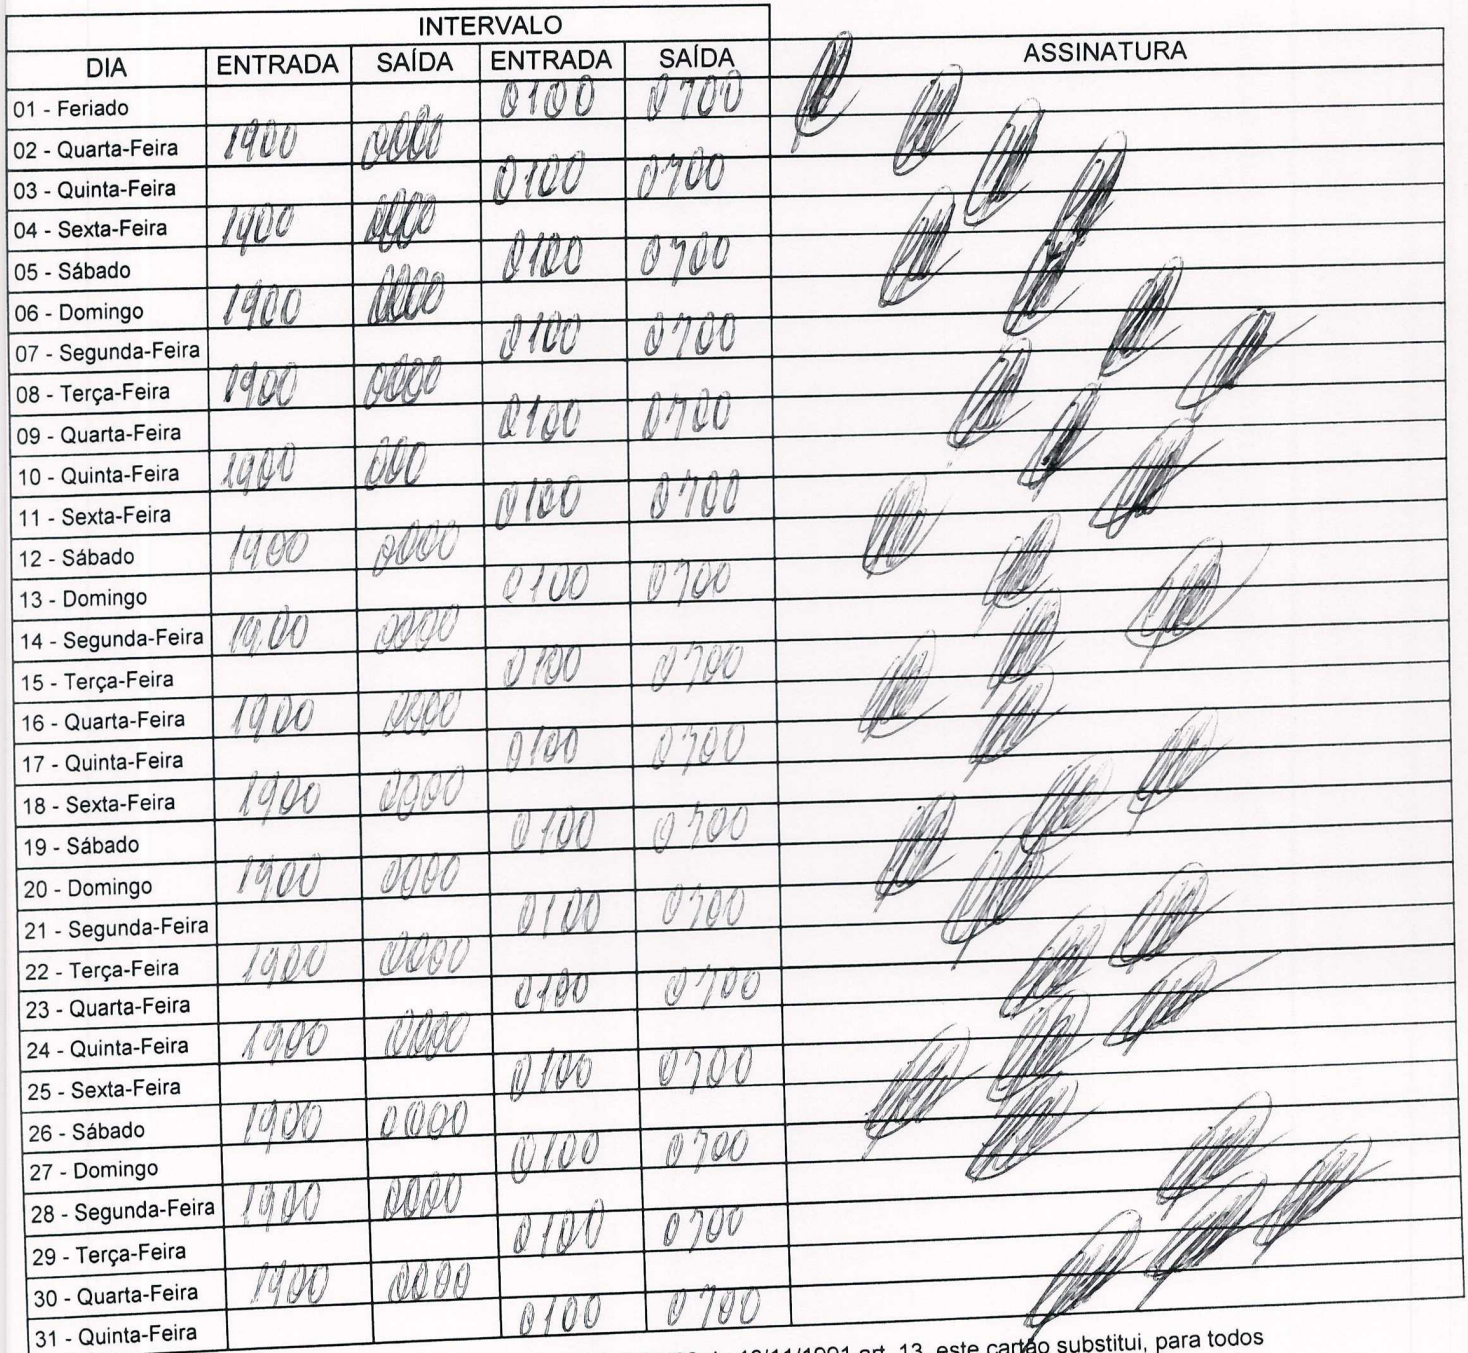 INTERVALO
DIA ENTRADA SAÍDA ENTRADA SAÍDA ASSINATURA
01 - Feriado 0100 0700
02 - Quarta-Feira 1900 0000
03 - Quinta-Feira 0100 0700
04 - Sexta-Feira 1900 0000
05 - Sábado 0100 0700
06 - Domingo 1900 0000
07 - Segunda-Feira 0100 0700
08 - Terça-Feira 1900 0000
09 - Quarta-Feira 0100 0700
10 - Quinta-Feira 1900 000
11 - Sexta-Feira 0100 0700
12 - Sábado 1900 0000
13 - Domingo 0100 0700
14 - Segunda-Feira 19.00 0000
15 - Terça-Feira 0100 0700
16 - Quarta-Feira 1900 0000
17 - Quinta-Feira 0100 0700
18 - Sexta-Feira 1900 0000
19 - Sábado 0100 0700
20 - Domingo 1900 0000
21 - Segunda-Feira 0100 0700
22 - Terça-Feira 1900 0000
23 - Quarta-Feira 0100 0700
24 - Quinta-Feira 1900 0000
25 - Sexta-Feira 0100 0700
26 - Sábado 1900 0000
27 - Domingo 0100 0700
28 - Segunda-Feira 1900 0000
29 - Terça-Feira 0100 0700
30 - Quarta-Feira 1900 0000
31 - Quinta-Feira 0100 0700
art. 13, este cartão substitui, para todos